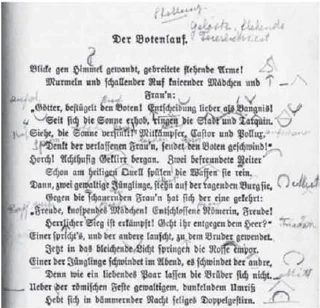 Der Botenlauf.
Blicke gen Himmel gewandt, gebreitete flehende Arme!
Murmeln und schallender Ruf knieender Mädchen und
Frau'n:
„Götter, beflügelt den Boten! Entscheidung lieber als Bangnis!
Seit sich die Sonne erhob, ringen die Stadt und Tarquin.
Siehe, die Sonne versinkt! Mitkämpfer, Castor und Pollux,
Denkt der verlassenen Frau'n, sendet den Boten geschwind!“
Horch! Achthufig Geklirr bergan. Zwei befreundete Reiter
Schon am heiligen Quell spülen die Waffen sie rein.
Dann, zwei gewaltige Jünglinge, stehn auf der ragenden Burg sie,
Gegen die schauernden Frau'n hat sich der eine gekehrt:
„Freude, knospendes Mädchen! Entschlossene Römerin, Freude!
Herrlicher Sieg ist erkämpft! Geht ihr entgegen dem Heer?“
Einer spricht's, und der andre lauscht, zu dem Bruder gewendet.
Jetzt in das bleichende Licht springen die Rosse empor.
Einer der Jünglinge schwindet im Abend, es schwindet der andre,
Denn wie ein liebendes Paar lassen die Brüder sich nicht.
Ueber der römischen Feste gewaltigem, dunkelndem Umriß
Hebt sich in dämmernder Nacht seliges Doppelgestirn.